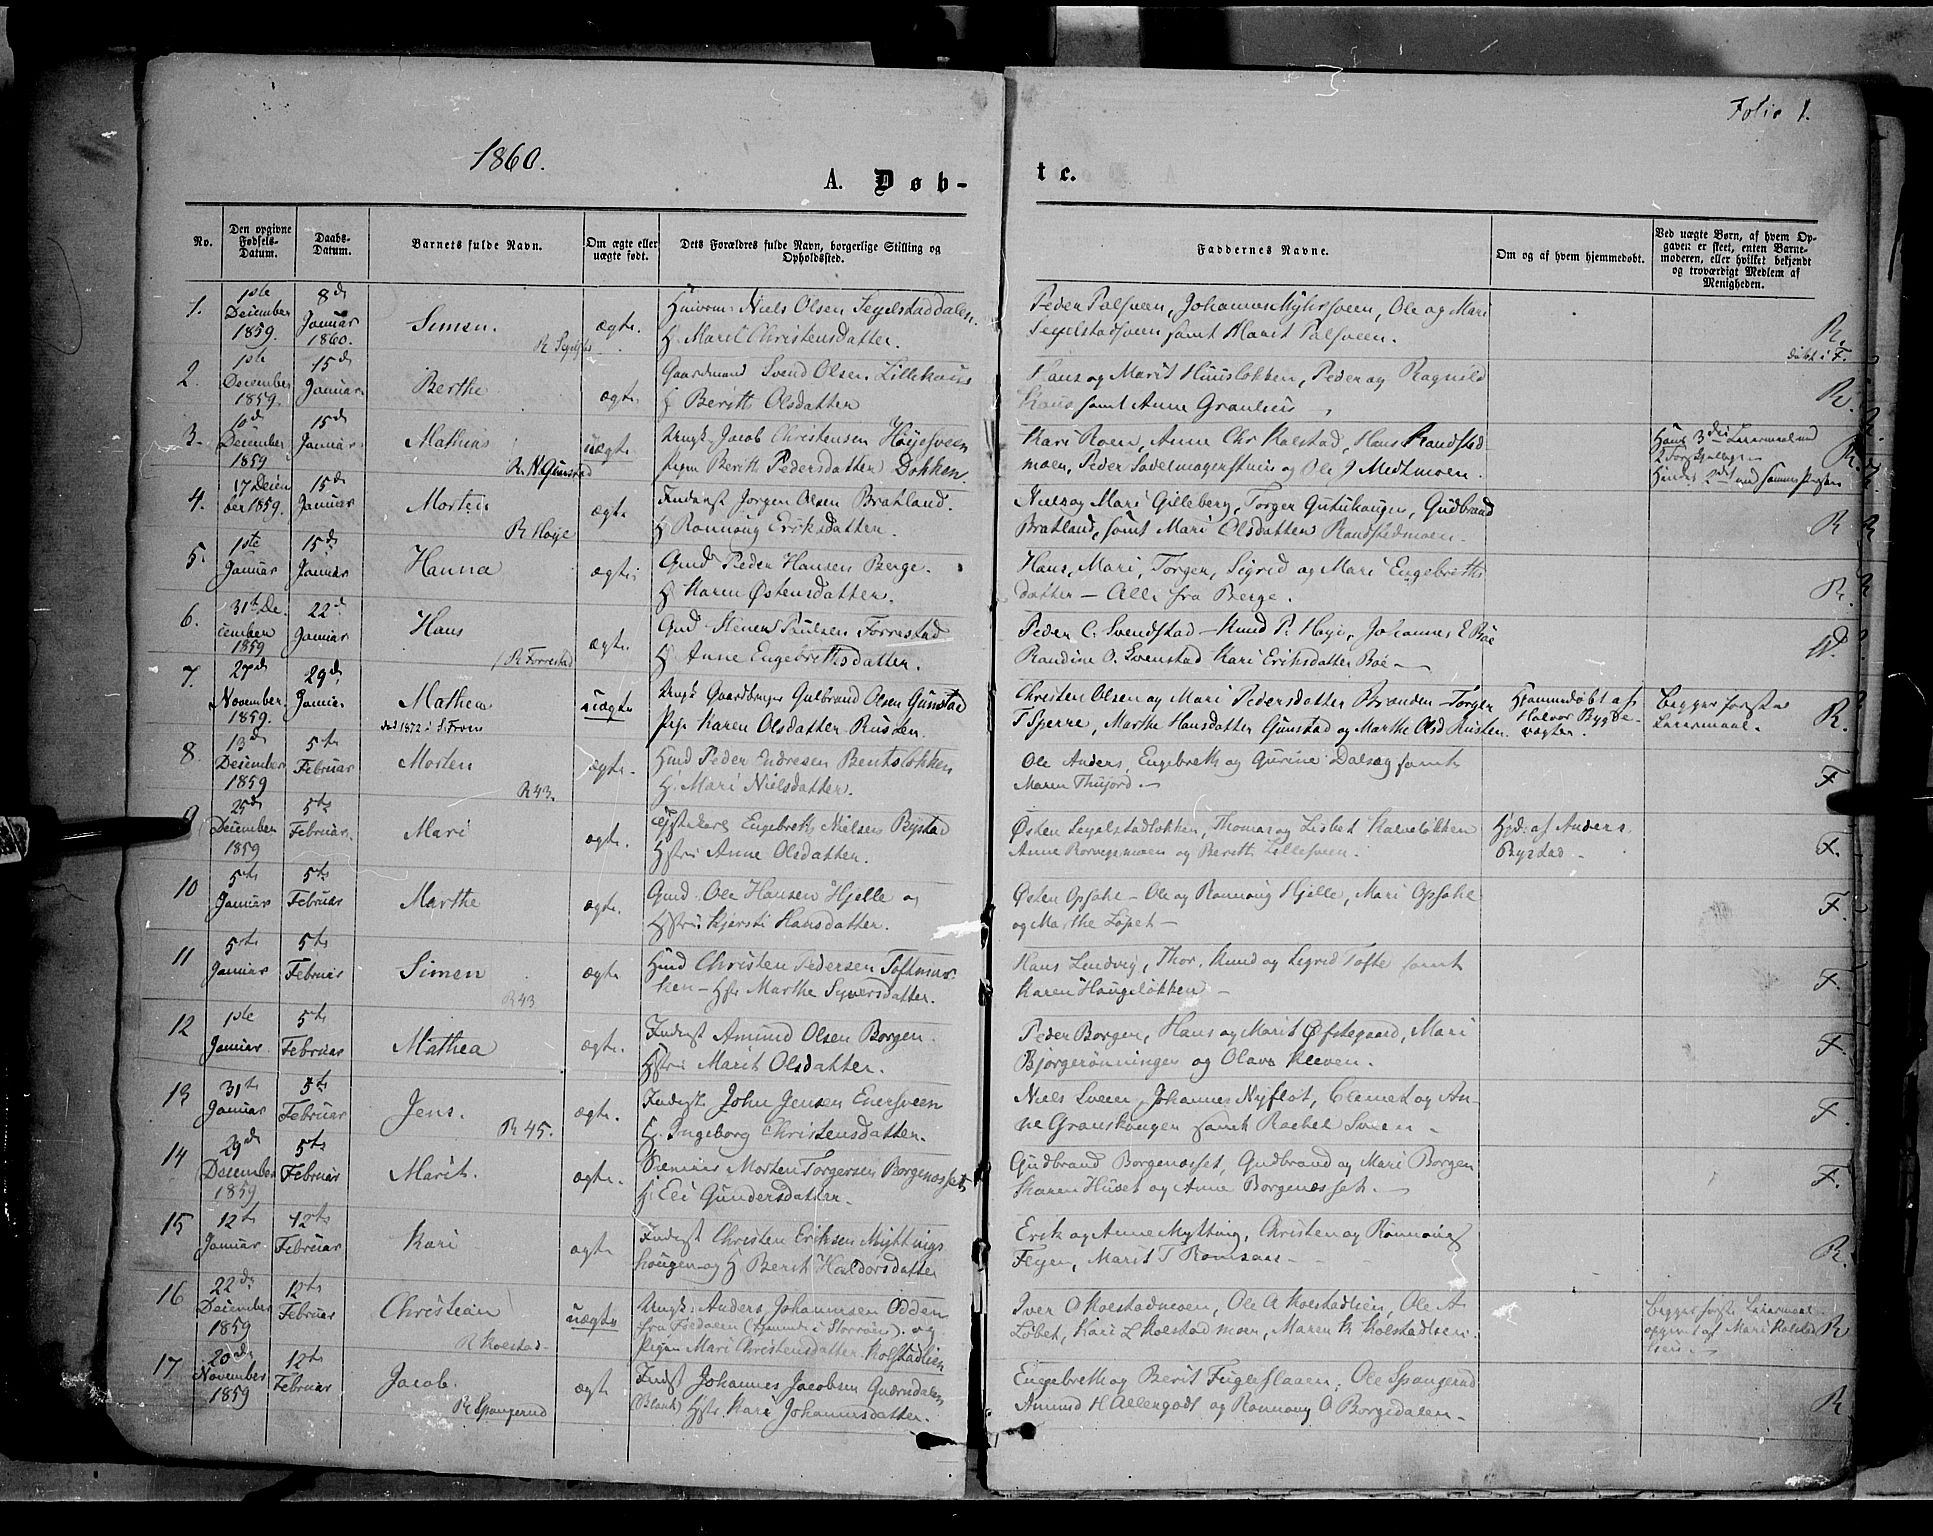 Folio 1.
1860.
A. Døb-
te.
No.
Den opgivne Fødsels-Datum.
Daabs-Datum.
Barnets fulde Navn.
Om ægte eller uægte født.
Dets Forældres fulde Navn, borgerlige Stilling og Opholdssted.
Faddernes Navne.
Om og af hvem hjemmedøbt.
Ved uægte Børn, af hvem Opgaven er skeet, enten Barnemoderen, eller hvilket bekjendt og troværdigt Medlem af Menigheden.
1. 1ste December 1859. 8de Januar 1860. Simen. ægte.
Niels Olsen Segelstaddalen.
H. Marit Christensdatter.
Peder Palsveen, Johannes Myhrsveen, Ole og Mari
Segelstadsveen samt Marit Palsveen.
R.
døbt i F.
2. 1ste December 1859. 15de Januar. Berthe ægte
Gaardmand Svend Olsen Lillehaus
H Beritt Olsdatter
Hans og Marit Huusløkken, Peder og Ragnild
Haus samt Anne Granlien
R.
3. 10de December 1859 15de Januar Mathias uægte
R. N. Gunstad
Ungk. Jacob Christensen Høyesveen
Pigen Beritt Pedersdatter Dokken.
Kari Roen, Anne Chr Kolstad, Hans Randstad
moen, Peder Sadelmagerstuen og Ole J Medtmoen.
Hans 3die Leiermaal
R.
4. 17 December 1859. 15de Januar Morten ægte
R Høye
Inderst Jørgen Olsen Bratland.
H Rønnoug Eriksdatter.
Niels og Mari Gilleberg, Torger Gutuhaugen, Gudbrand
Bratland, samt Mari Olsdatter Randstadmoen.
R
5. 1ste Januar 15de Januar Hanna ægte
Gmd Peder Hansen Berge.
H Karen Østensdatter.
Hans, Mari, Torger, Sigrid og Mari Engebretts
datter — Alle fra Berge.
R.
6. 31te December 1859 22de Januar Hans ægte
R Forrestad
Gmd Stener Poulsen Forrestad
H. Anne Engebrettsdatter.
Peder C. Svendstad - Knud P. Høye, Johannes E Bøe
Randine O. Svenstad Kari Eriksdatter Bøe —
7. 27de November 1859. 29de Januar Mathea uægte
død 1872 i S. Fron
Ungk Gaardbruger Gulbrand Olsen Gunstad
Pige Karen Olsdatter Rusten.
Christen Olsen og Mari Pedersdatter Brænden - Torger
T Sperre, Marthe Hansdatter Gunstad og Marthe Olsd Rusten.
Hjemmedøbt af
Halvor Bygde
vogter.
Begges første
Leiermaal.
R.
8. 13de December 1859 5te Februar Morten ægte.
R 43.
Hmd Peder Endresen Bentsløkken
H. Mari Nielsdatter.
Ole Anders, Engebreth og Gurine Dalseg samt
Maren Thujord —
F
9. 25de December 1859 5te Februar. Mari ægte.
Engebreth Nielsen Bystad
Hstru Anne Olsdatter.
Østen Segelstadløkken, Thomas og Lisbet Kalveløkken
Anne Rorvegsmoen og Berith Lillesveen.
Hjd. af Anders
Bystad
F.
10 5te Januar 5te Februar Marthe ægte.
Gmd. Ole Hansen Hjelle og
Hstru Kjersti Hansdatter.
Østen Opsahl - Ole og Rønnoug Hjelle, Mari Opsahl
og Marthe Løpet —
F.
11 5te Januar 5te Februar Simen ægte
R 43
Hmd Christen Pedersen Toftemar
ken — Hstr Marthe Syversdatter.
Hans Lundvig, Thor, Knud og Sigrid Tofte samt
Karen Haugeløkken —
F
12 1ste Januar. 5te Februar Mathea ægte.
Inderst Amund Olsen Borgen.
Hstru Marit Olsdatter.
Peder Borgen, Hans og Marit Øfstegaard, Mari
Bjørgerønningen og Olava Kleven.
F
13 31te Januar 5te Februar Jens. ægte.
R 45.
Inderst John Jensen Enersveen
H. Ingeborg Christensdatter.
Niels Sveen, Johannes Nyfløt, Clemet og An-
ne Granskougen samt Rachel Sveen -
F
14 29de December 1859 5te Februar Marit. ægte.
Morten Torgersen Borgenæsset
H. Eli Gundersdatter.
Gudbrand Borgenæsset, Gudbrand og Mari Borgen
Karen Huset og Anne Borgenæsset. —
F.
15 12te Januar 12te Februar Kari ægte
Inderst Christen Eriksen Myttings
hougen og H Berit Haldorsdatter
Erik og Anne Mytting, Christen og Rønnoug
Flyen, Marit T Romsaas —
R.
16 22de December 1859 12te Februar Christian uægte
R Kolstad
Ungk. Anders Johannesen Odden
og
Pigen Mari Christensdatter Kolstadlien
Iver O Kolstadmoen, Ole A Kolstadlien, Ole A
Løbet, Kari L Kolstadmoen, Maren K Kolstadlien.
Begges første Leiermaal
opgivet af Mari Kolstad
lien
R
17 20de November 1859 12te Februar Jacob. ægte
R Spangrud
Inderst Johannes Jacobsen Quærndalen
(Blank) Hstr Kari Johannesdatter.
Engebreth og Berit Fugleflaaen, Ole Spangrud
Amund H Allergodt og Rønnoug O Borgedalen —
R